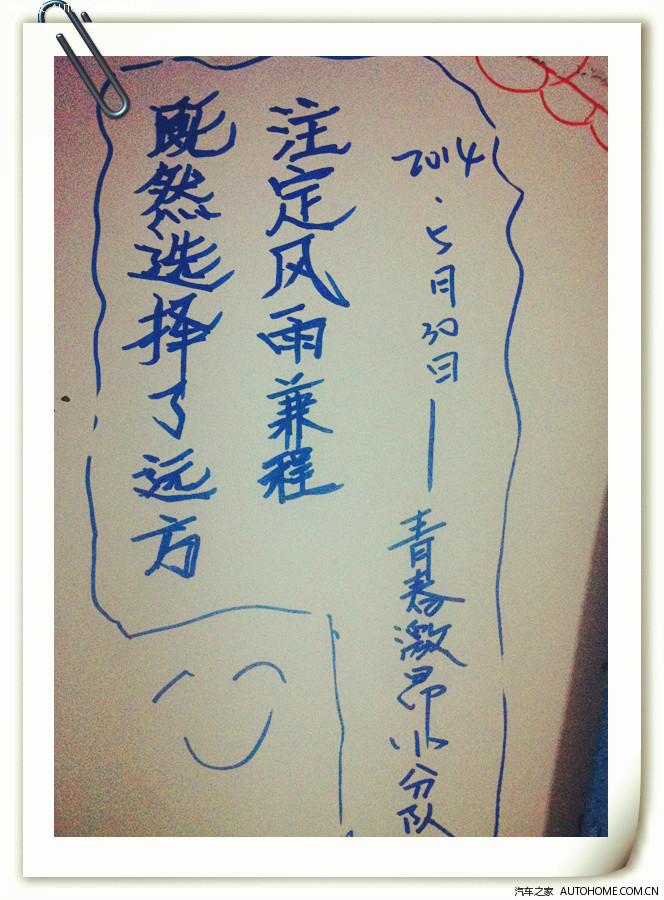 既然选择了远方
注定风雨兼程
2014.5月30日—青春激昂小分队
汽车之家 AUTOHOME.COM.CN